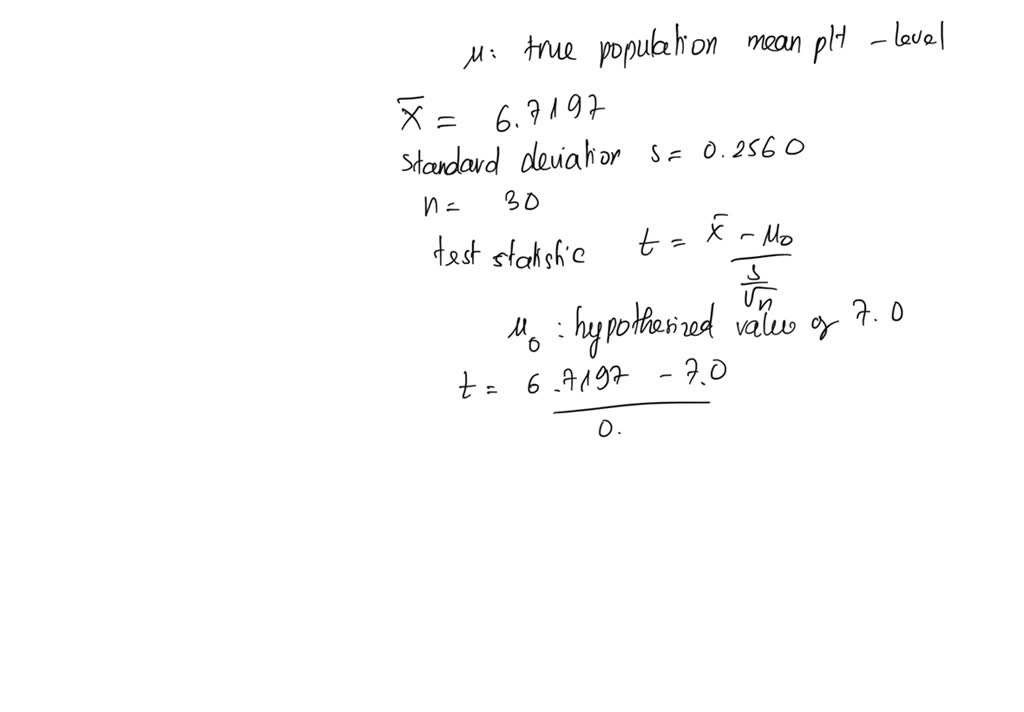 μ: true population mean pH - level
x̄ = 6.7197
standard deviation s = 0.2560
n = 30
test statistic t = x̄ - μ₀ / s/√n
μ₀ : hypothesized value of 7.0
t = 6.7197 - 7.0 / 0.